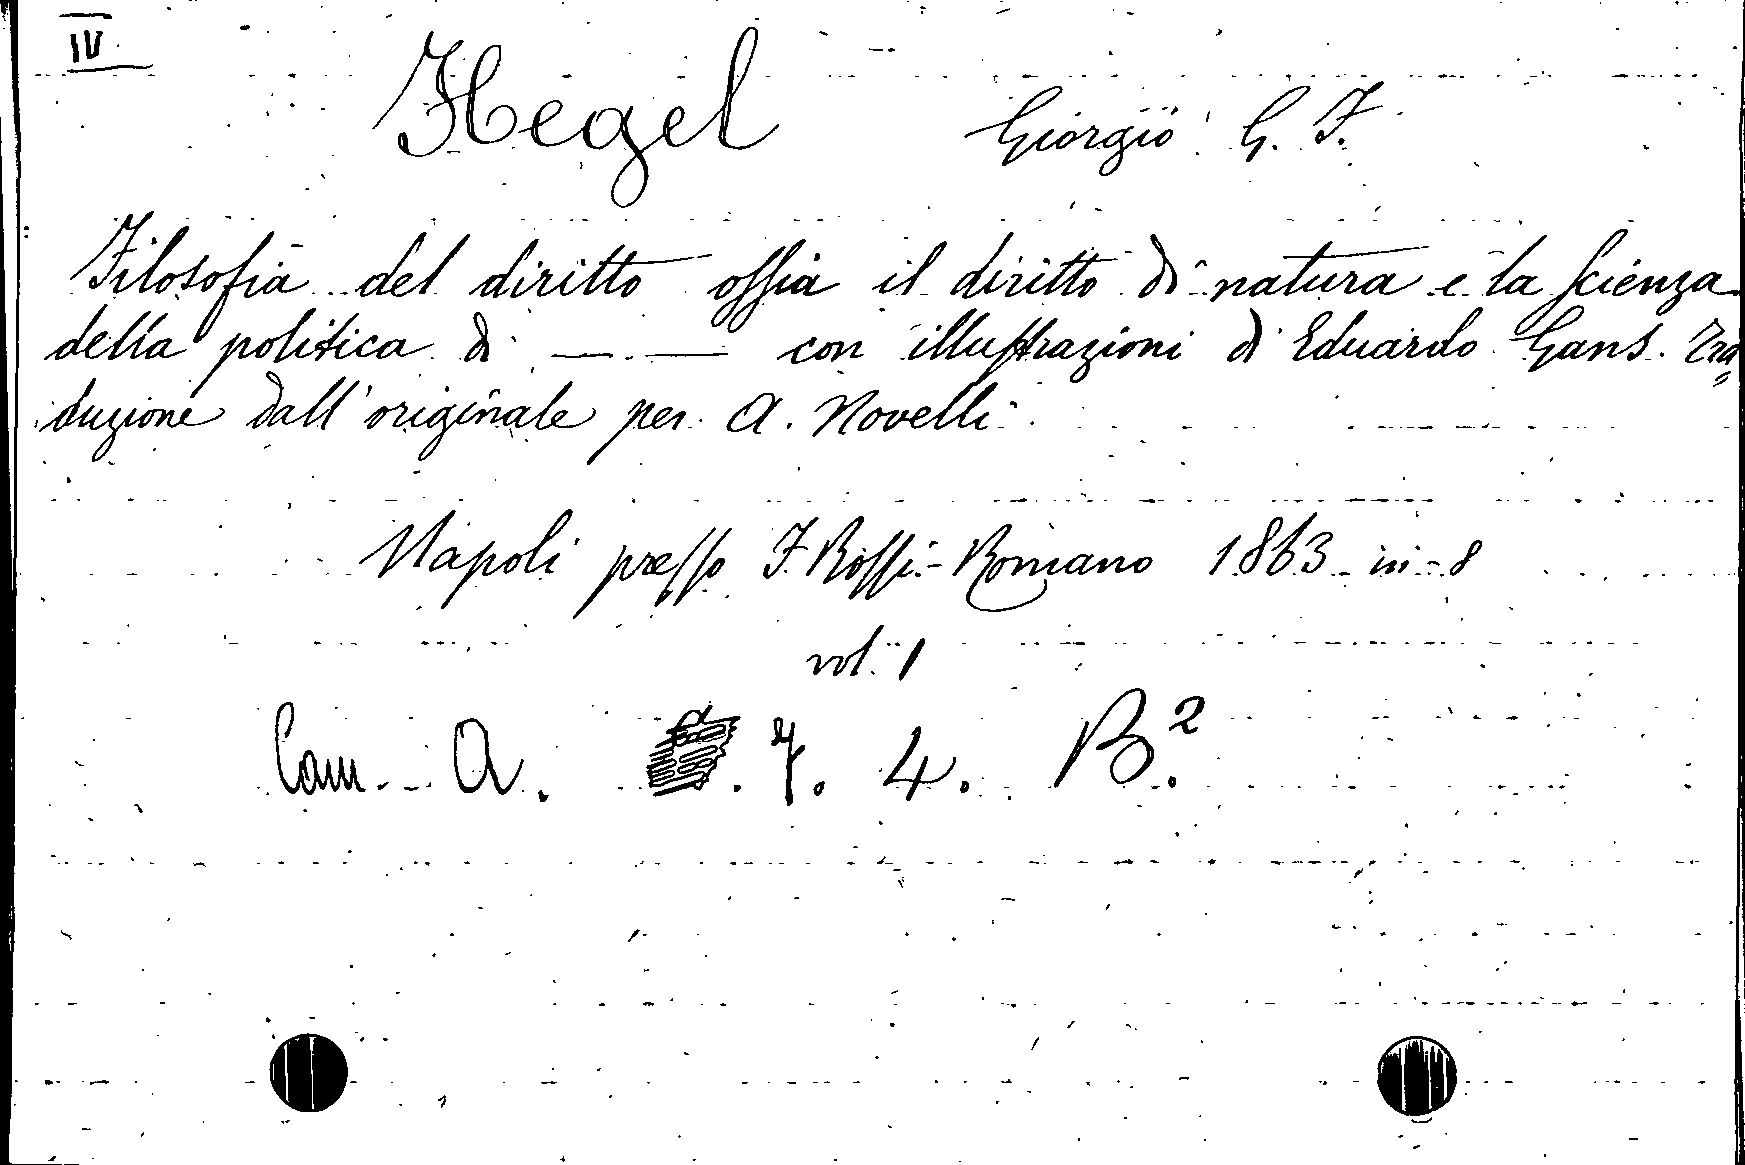 IV
Hegel Giorgio G. F.
Filosofia del diritto ossia il diritto di natura e la scienza
della politica di — — con illustrazioni di Eduardo Gans. Tra=
duzione dall'originale per A. Novelli
Napoli presso F. Rossi-Romano 1863 in-8
vol. 1
Cam. A. 7. 4. B².